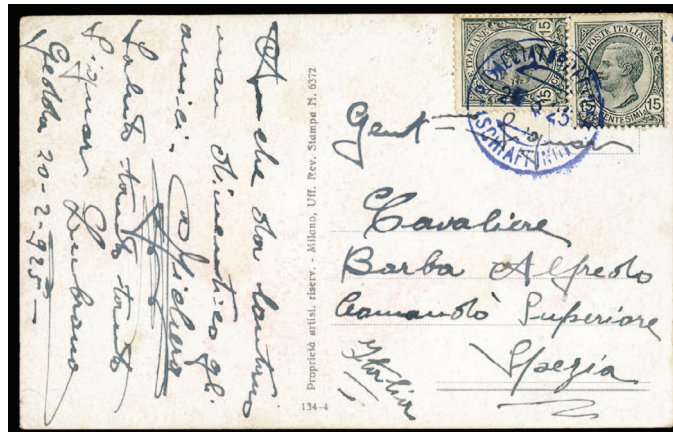 Anche da lontano
non dimentico gli
amici.
Saluto tanto tanto
Signor
Gedda 20-2-925-
Proprietà artist. riserv. - Milano, Uff. Rev. Stampa N. 6372
134-4
POSTE ITALIANE
15
CENTESIMI
15
POSTE ITALIANE
15
CENTESIMI
15
Gent=
Cavaliere
Barba Alfredo
Comando Superiore
Spezia
Italia